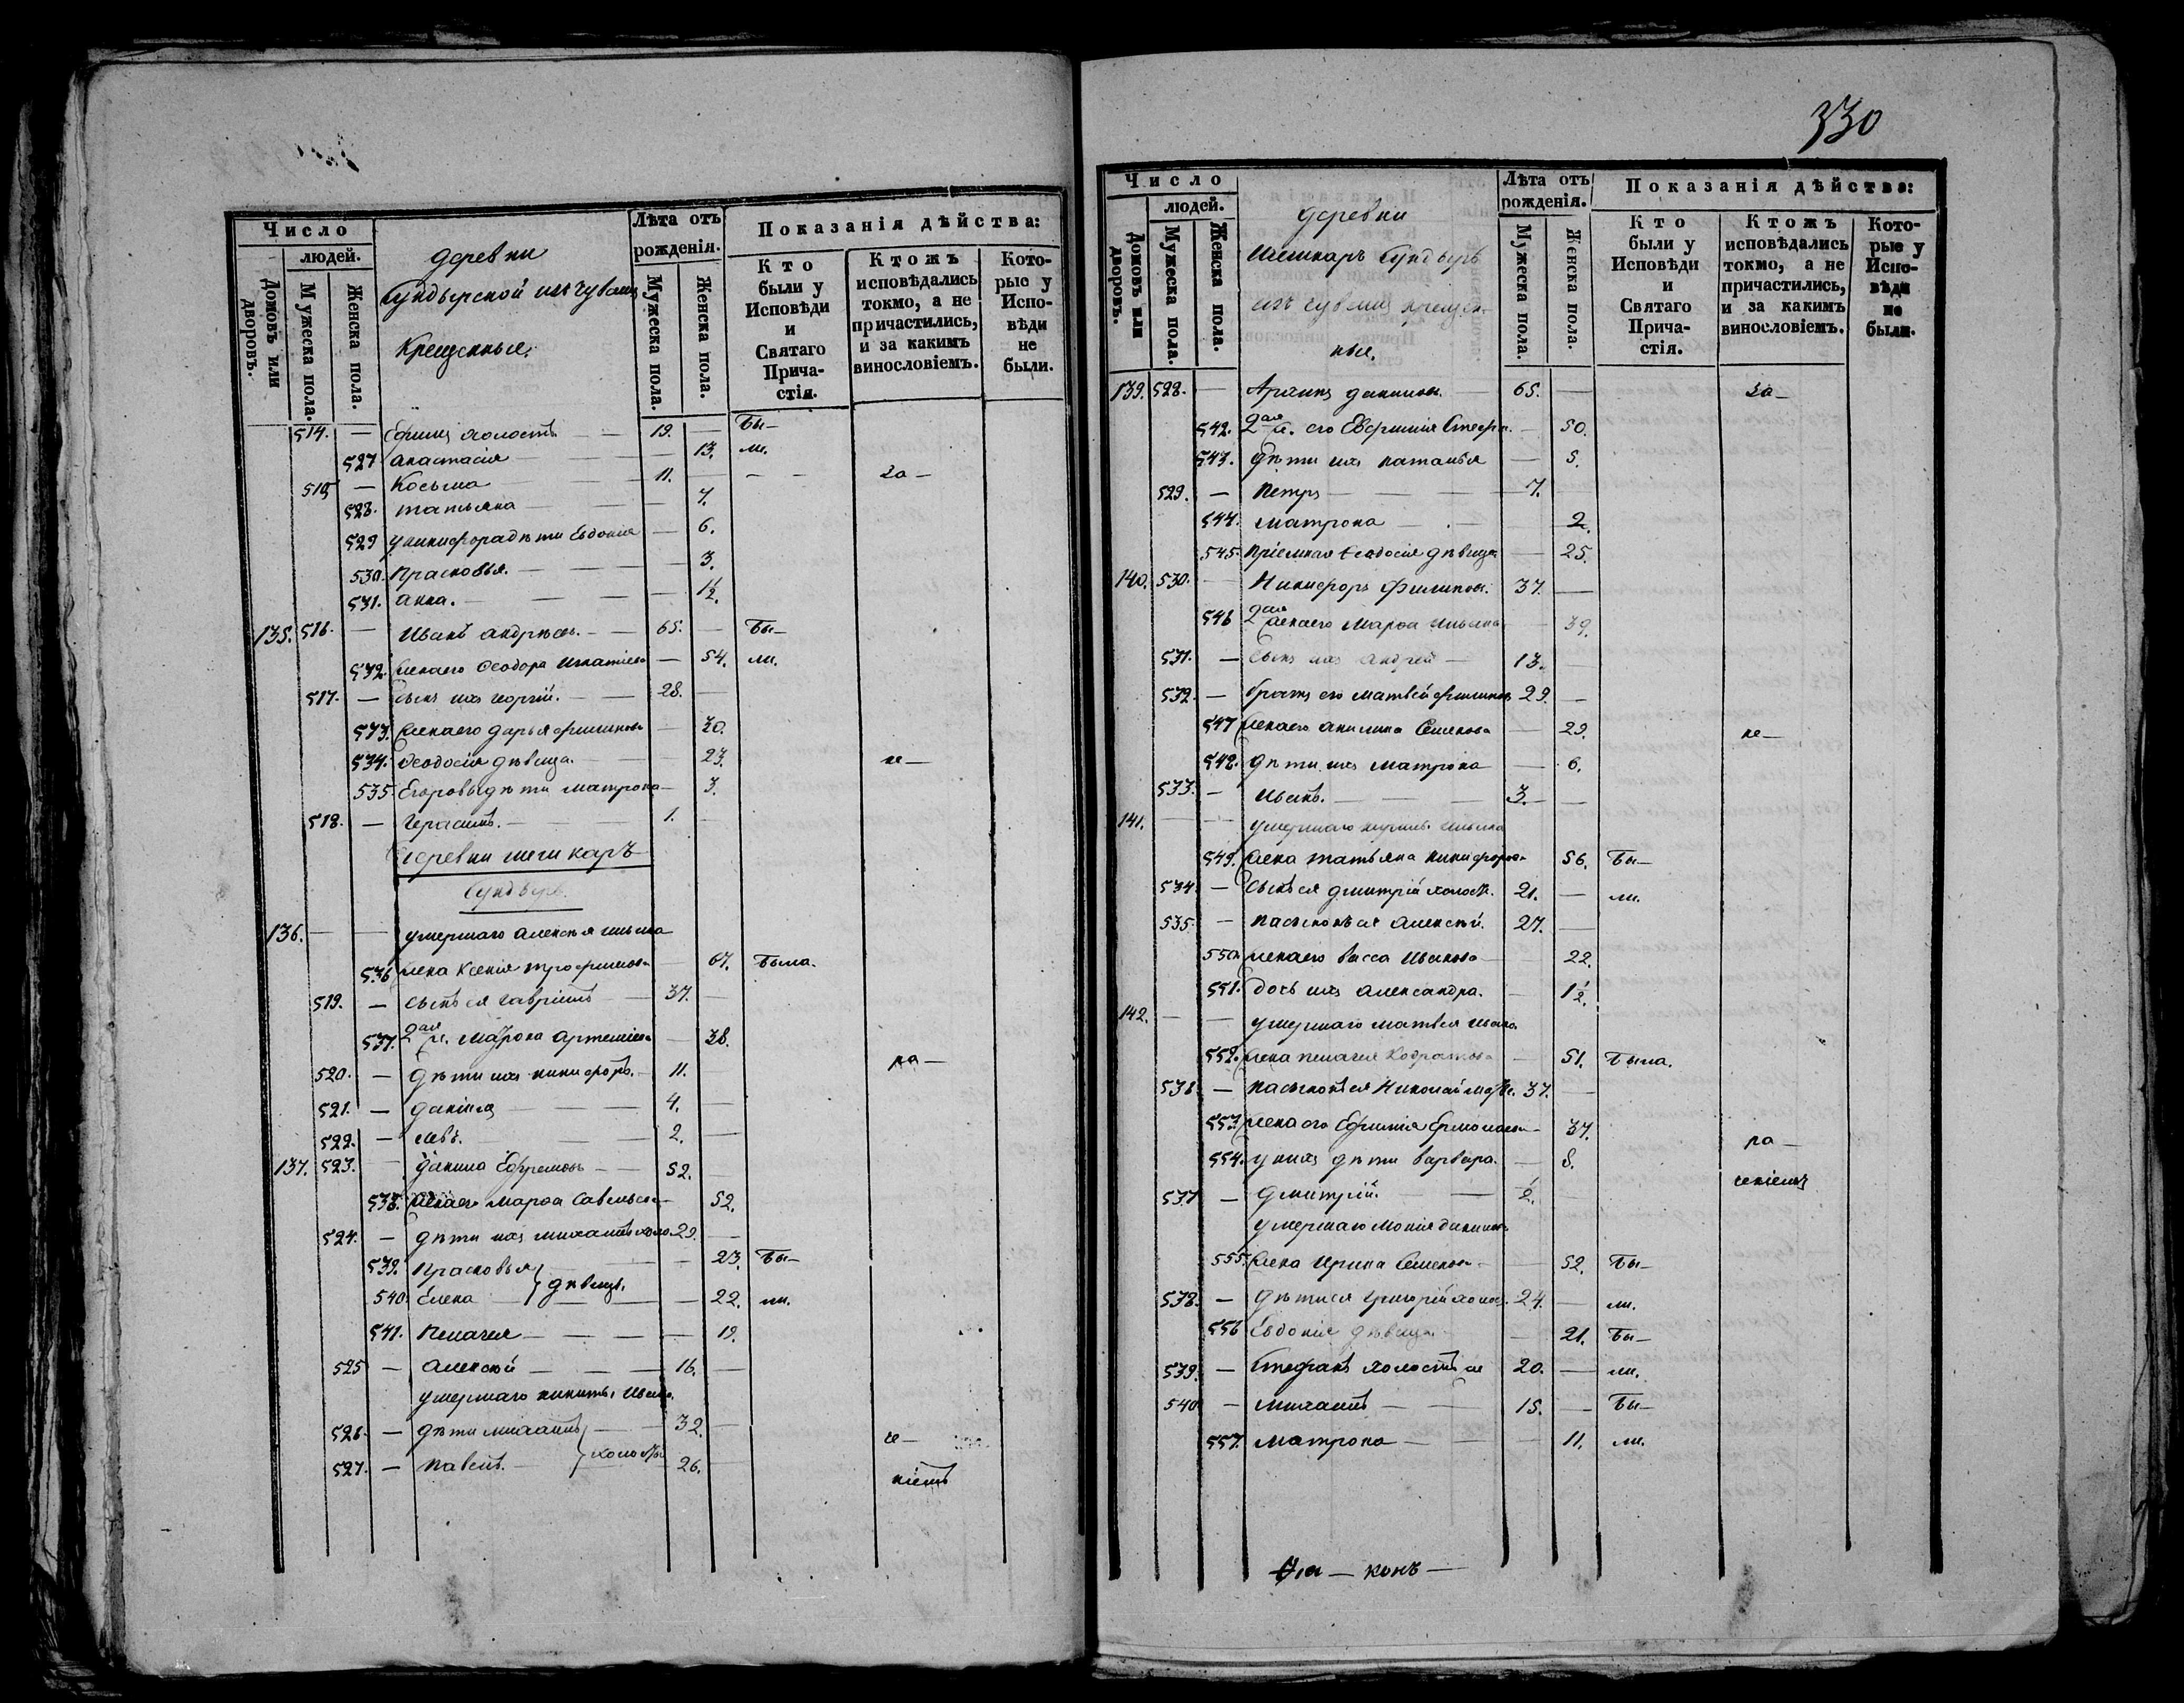 Число
людей.
Домовъ или дворовъ.
Мужеска пола.
Женска пола.
деревни
Сундырской изъ чувашъ
Крещенныя.
Лѣта отъ рожденія.
Мужеска пола.
Женска пола.
Показанія дѣйства:
Кто были у Исповѣди и Святаго Причастія.
Ктожъ исповѣдались токмо, а не причастились, и за какимъ винословіемъ.
Которые у Исповѣди не были.
514. — Ефимъ холостъ — 19. — Бы—
527 Анастасія — 13. ли.
515 — Косьма — 11. — — за —
528. Татьяна — 7.
529 у Никифора дѣти Евдокія — 6.
530. Прасковья. — 3.
531. Анна. — 1/2.
135. 516. — Иванъ Андреевъ. — 65. — Бы—
532. Жена его Ѳеодора Игнатіева — 54. ли.
517. — Сынъ ихъ Георгій. — 28. —
533. Жена его Дарья Филипова — 30.
534. Ѳеодосія дѣвица. — 23. не —
535. Егоровы дѣти Матрона — 3.
518. — Герасимъ. — 1. —
Деревни Шешкаръ
Сундырь.
136. — — умершаго Алексѣя Ильина
536 Жена Ксенія Трофимова — 67. Была.
519. — Сынъ ея Гавріилъ — 37. —
537. 2ая ж. Марѳа Артемьева — 38.
520. — Дѣти ихъ Никифоръ. — 11. ра —
521. — Даніилъ — 4. —
522. — Левъ. — 2. —
137. 523. — Данила Ефремовъ — 52. —
538. Жена его Марѳа Савельева — 52.
524. — Дѣти ихъ Михаилъ холо. 29. —
539. Прасковья — 23. Бы—
540. Елена } дѣвицы. — 22. ли.
541. Пелагея — 19.
525 — Алексѣй — 16. —
умершаго Никиты Ивано.
526. — Дѣти Михаилъ — 32. — че —
527. — Павелъ. } холосты 26. ніемъ
330
Число
людей.
Домовъ или дворовъ.
Мужеска пола.
Женска пола.
деревни
Шешкаръ Сундырь
изъ чувашъ крещен-
ныя.
Лѣта отъ рожденія.
Мужеска пола.
Женска пола.
Показанія дѣйства:
Кто были у Исповѣди и Святаго Причастія.
Ктожъ исповѣдались токмо, а не причастились, и за какимъ винословіемъ.
Которые у Исповѣди не были.
139. 528. — Данилов. — 65. — за —
542. 2ая ж. его Евфимія Стефа. — 50.
543. Дѣти ихъ Наталья — 5.
529. — Петръ — 7. —
544. Матрона — 2.
545. Пріемная Ѳеодосія дѣвица — 25.
140. 530. — Никифоръ Филиповъ. 37. —
546 2ая жена его Марѳа Ильина — 39.
531. — Сынъ ихъ Андрей — 13. —
532. — Братъ его Матвей Филиповъ 29. —
547 Жена его Акилина Семенова — 29. не —
548. Дѣти ихъ Матрона — 6.
533. — Иванъ. — 3. —
141. — — умершаго Ильина
549. Жена Татьяна Никифорова 56. Бы—
534. — Сынъ ея Дмитрій холостъ. 21. — ли.
535. — Пасынокъ ея Алексѣй. 27. —
550. Жена его Васса Иванова — 22.
551. Дочь ихъ Александра. — 1 1/2.
142. — — умершаго Матвея Ивано.
552. Жена Пелагея Кодратьева — 51. Была.
536. — Пасынокъ ея Николай Матв. 37. —
553. Жена его Ефимія Ермолаева — 37. ра —
554. у нихъ дѣти Варвара. — 8.
537 — Дмитрій. — 1/2. — ченіемъ
умершаго Данилова
555. Жена Ирина Семенова — 52. Бы—
538. — Дѣти ея Григорій холос. 24. — ли.
556 Евдокія дѣвица. — 21. Бы—
539. — Стефанъ холостъ 20. — ли.
540. — Михаилъ — 15. — Бы—
557. Матрона — 11. ли.
конъ —